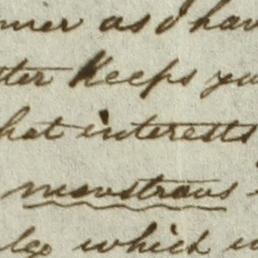 ner as I hav
tter keeps you
hat interests
monstrous
lso which w